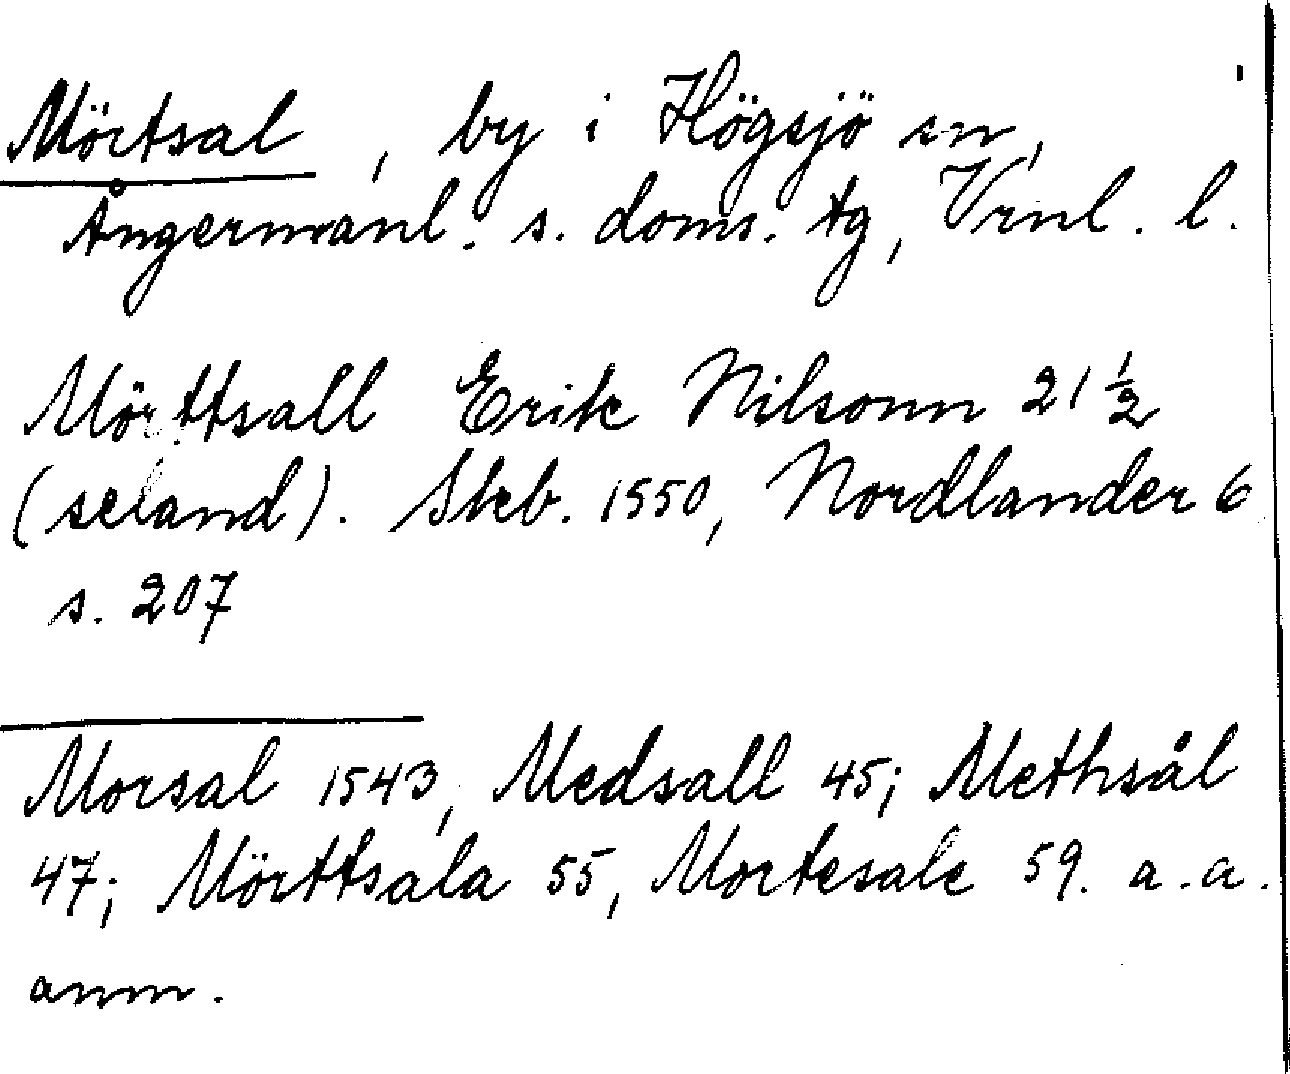 Mörtsal, by i Högsjö sn,
Ångermanl. s. doms. tg, Vrnl. l.
Mörttsall Erik Nilsonn 21 ½
(seland). Skb. 1550, Nordlander 6
s. 207
Morsal 1543, Medsall 45; Methsål
47; Mörttsala 55, Mortesale 59. a.a.
anm.